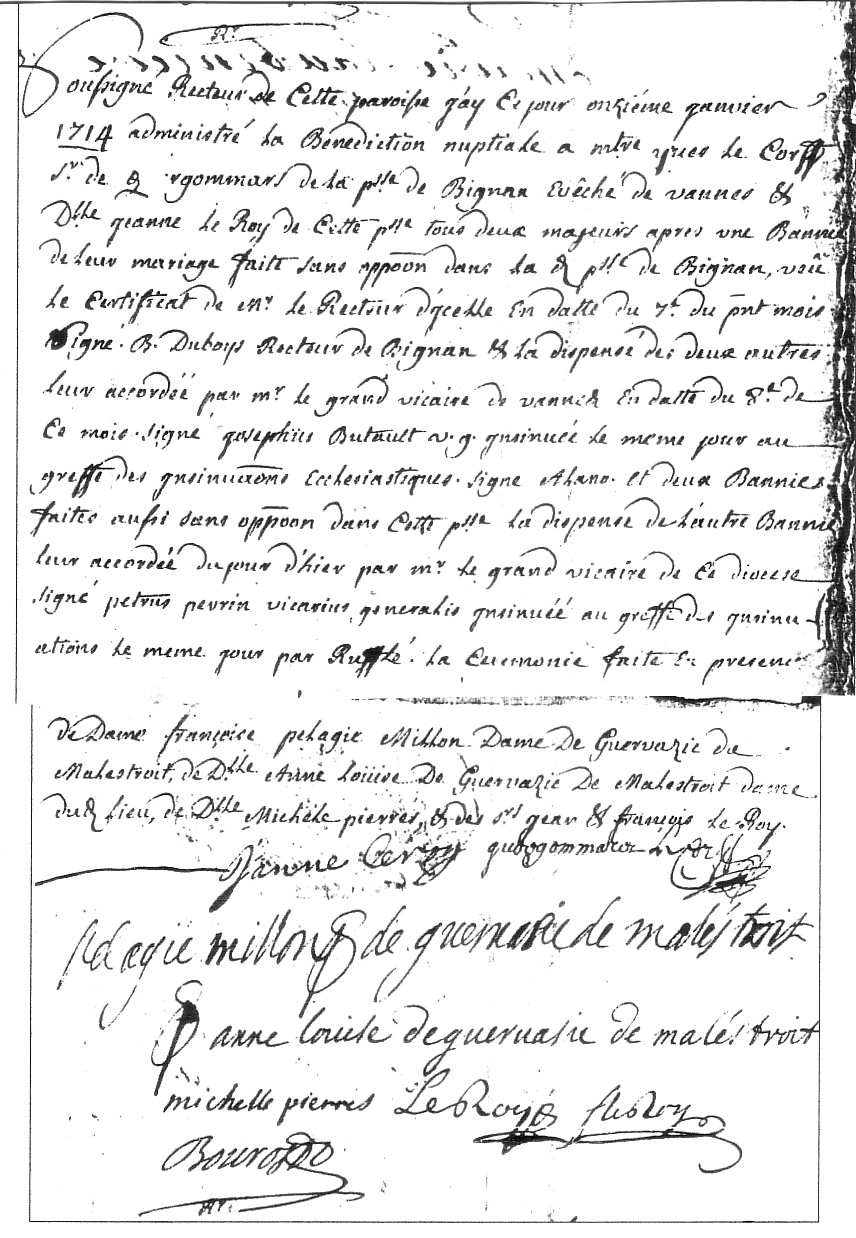 Soussigné Recteur de Cette paroisse g'ay Ce jour onziéme ganvier
1714 administré La Bénediction nuptiale a mtre yves Le Corff
Sr. de rgommars de La psse de Bignan Evêché de vannes &
Dlle geanne Le Roy de Cette psse tous deux majeurs apres une Bannie
de Leur mariage faite sans oppoon dans La d psse de Bignan, veu
Le Certificat de Mr. Le Recteur d'ycelle En datte du 7e. du pnt mois
Signé. B. Duboys Recteur de Bignan & La dispense des deux autres
Leur accordéé par mr Le grand vicaire de vannes En datte du 8e. de
Ce mois. signé gosephus Butault v. g. ynsinuéé Le meme jour au
greffe des ynsinuaons Ecclesiastiques. signe Ahano. et deux Bannies
faites aussi sans oppoon dans Cette psse La dispense de L'autre Bannie
Leur accordéé du jour d'hier par mr. Le grand vicaire de Ce diocese
signé petrus perrin vicarius generalis ynsinuéé au greffe des ynsinu-
ations Le meme gour par Rufflé. La Ceremonie faite En presence
de Dame françoise pelagie Millon Dame De Guervazic de
Malestroit, de Dlle Anne Louise De Guervazic De Malestroit dame
du d Lieu, de Dlle Michele pierres, & des srs gean & françois Le Roy.
Janne Leroy
pelagie millon de guervasie de malés troit
anne louise de guervasie de malés troit
michelle pierres Le Roy fLeRoy